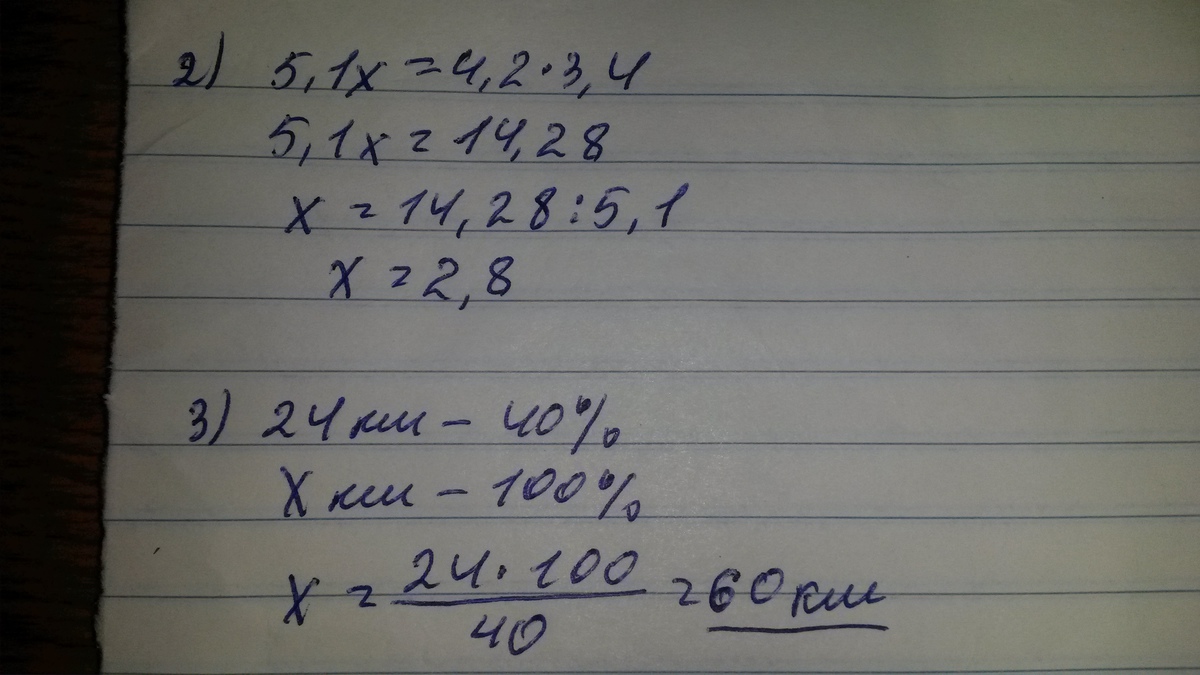 2) 5,1x = 4,2·3,4
5,1x = 14,28
x = 14,28:5,1
x = 2,8
3) 24 км – 40%
x км – 100%
x = 24·100 / 40 = 60 км